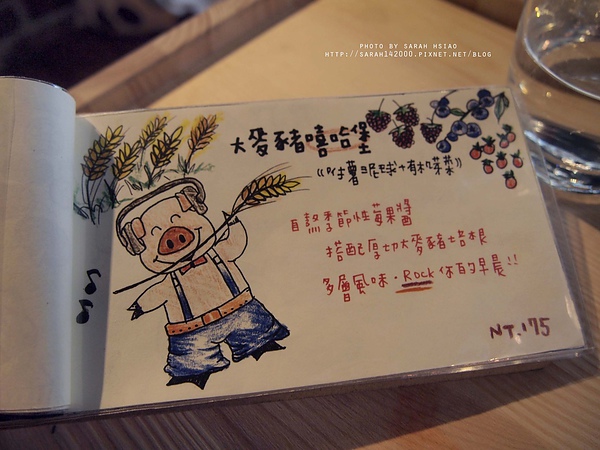 PHOTO BY SARAH HSIAO
HTTP://SARAH142000.PIXNET.NET/BLOG
大麥豬嘻哈堡
《附薯泥球+有機菜》
自熬季節性莓果醬
搭配厚切大麥豬培根
多層風味·Rock你的早晨!!
NT.175